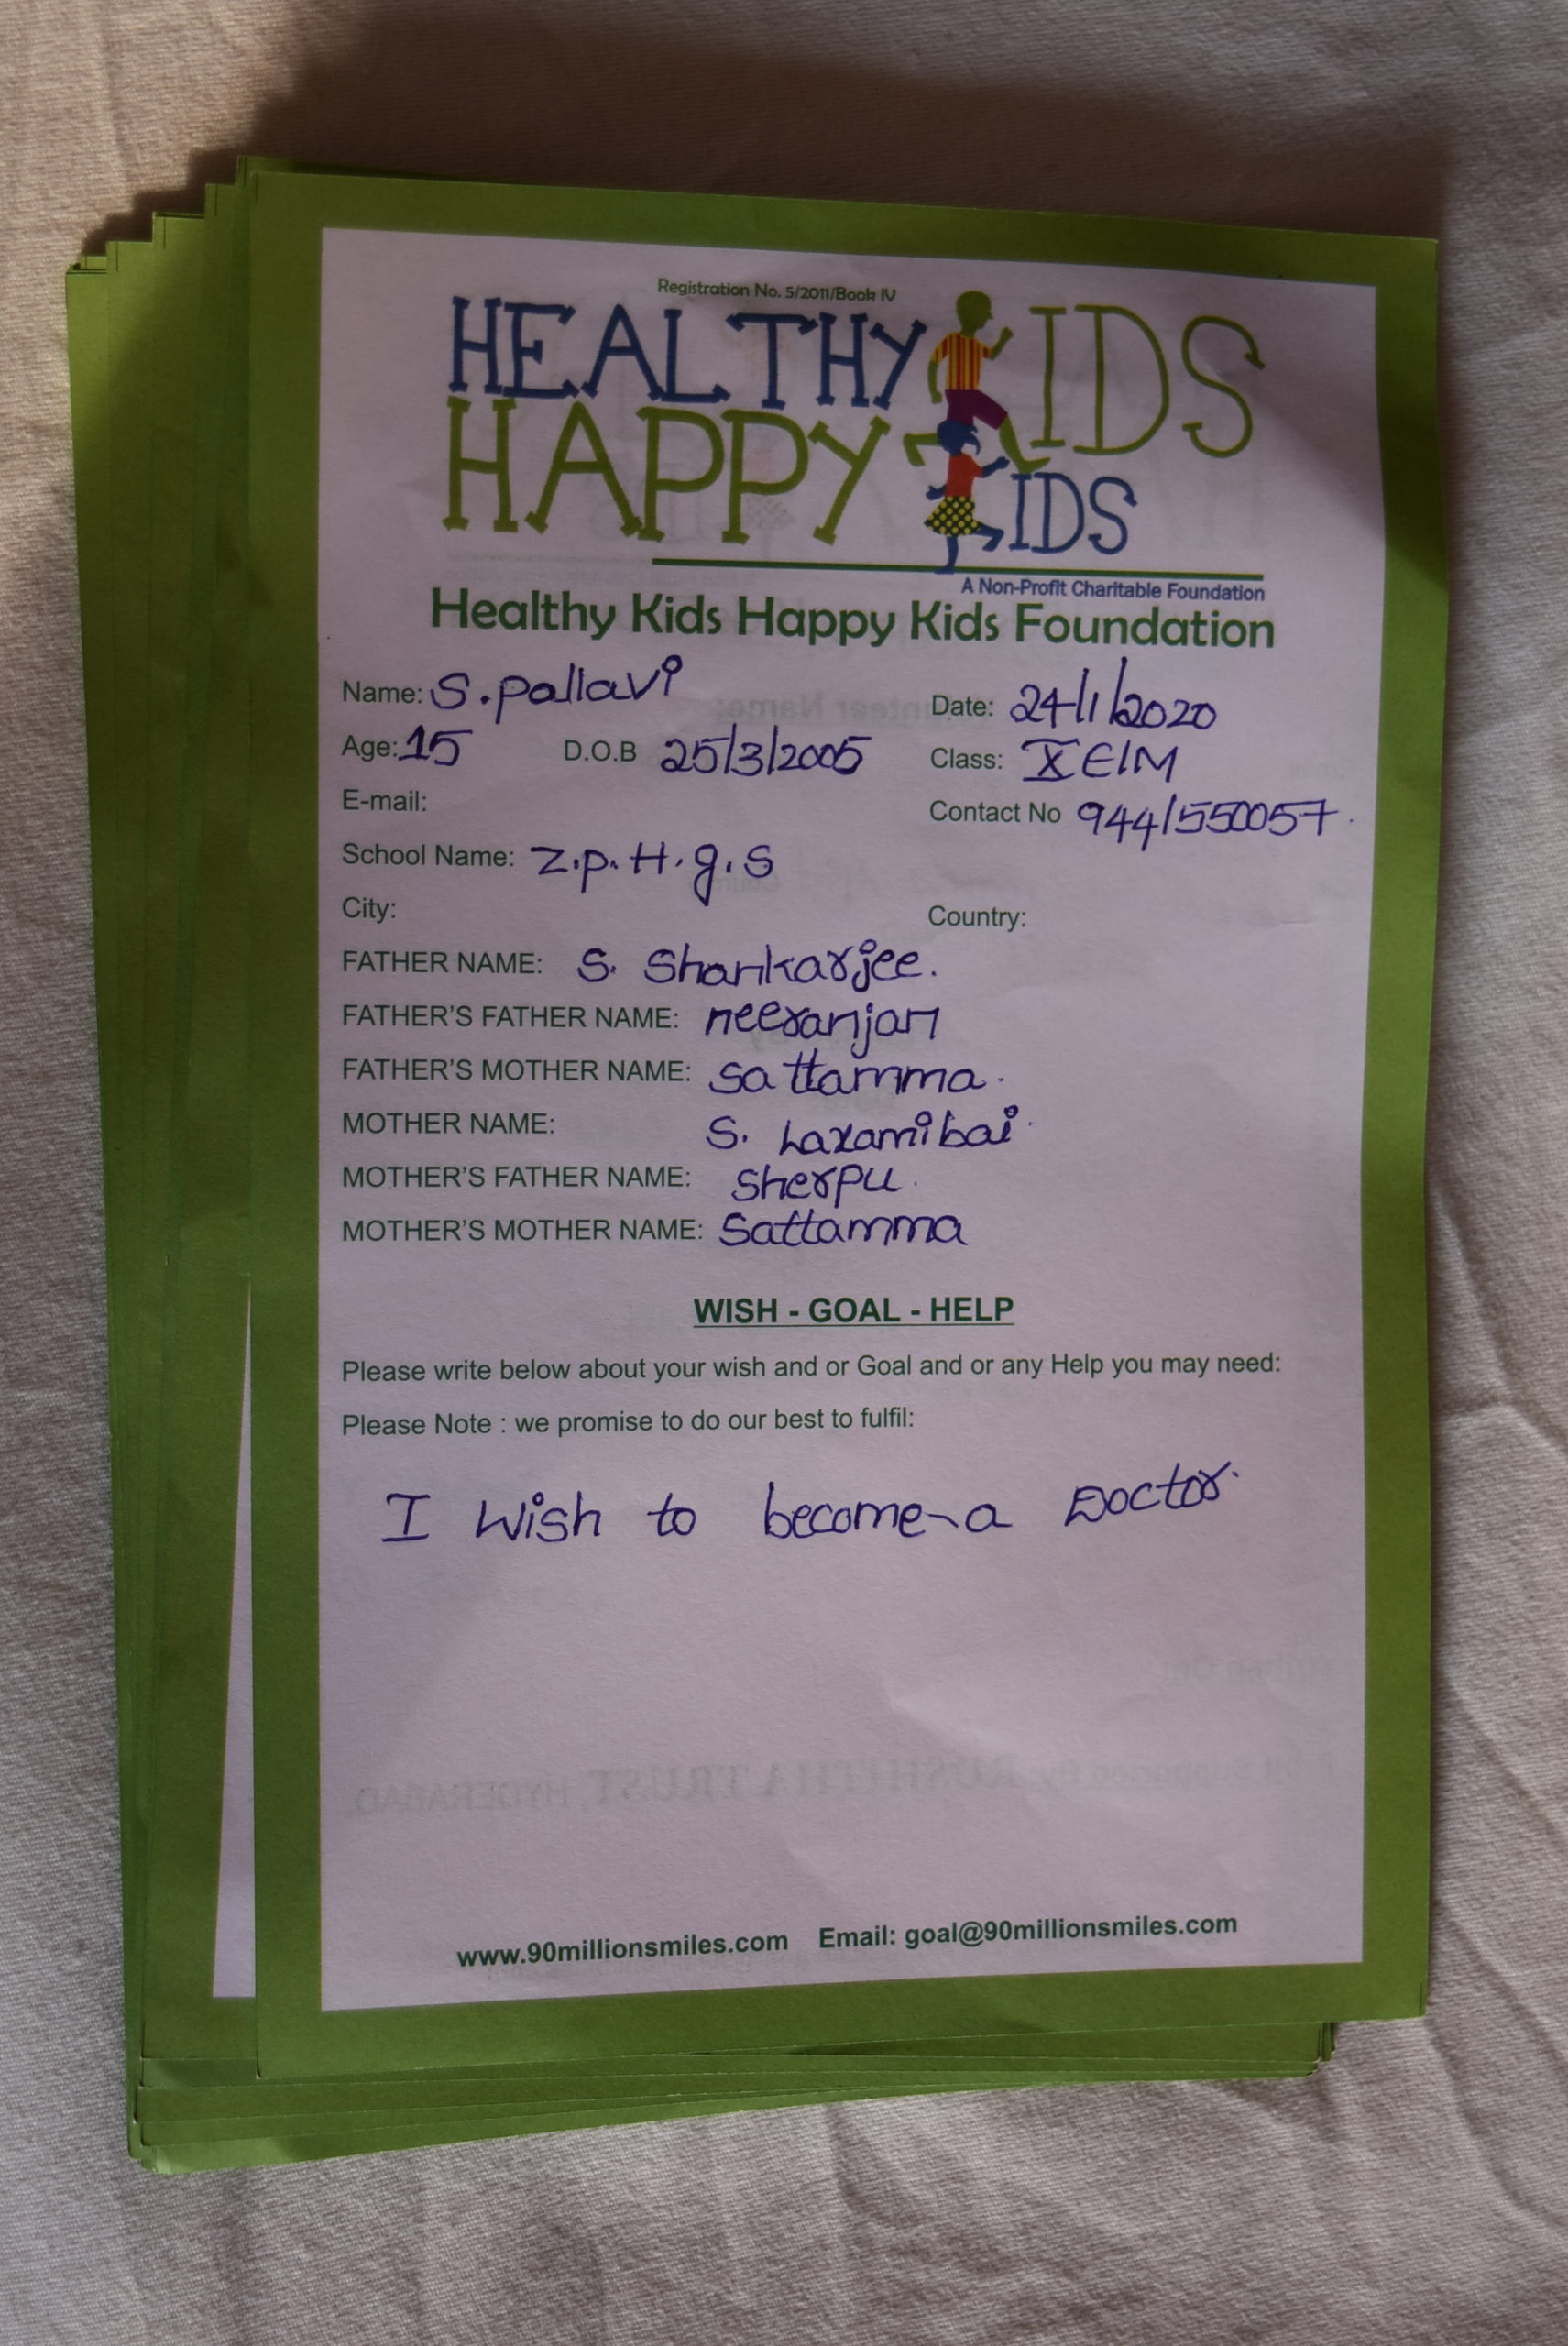 Registration No. 5/2011/Book IV
HEALTHY KIDS
HAPPY KIDS
A Non-Profit Charitable Foundation
Healthy Kids Happy Kids Foundation
Name: S. pallavi Date: 24/1/2020
Age: 15 D.O.B 25/3/2005 Class: X E/M
E-mail: Contact No 9441550057.
School Name: Z.p.H.g.s
City: Country:
FATHER NAME: S. Shankarjee.
FATHER'S FATHER NAME: neeranjan
FATHER'S MOTHER NAME: Sattamma.
MOTHER NAME: S. Laxamibai.
MOTHER'S FATHER NAME: Sherpu.
MOTHER'S MOTHER NAME: Sattamma
WISH - GOAL - HELP
Please write below about your wish and or Goal and or any Help you may need:
Please Note : we promise to do our best to fulfil:
I wish to become a Doctor.
www.90millionsmiles.com Email: goal@90millionsmiles.com